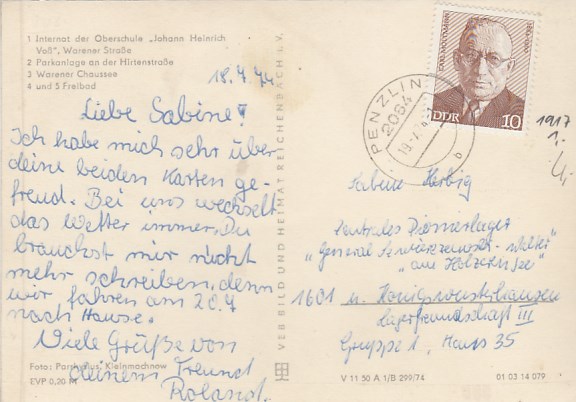 1 Internat der Oberschule „Johann Heinrich
Voß“, Warener Straße
2 Parkanlage an der Hirtenstraße
3 Warener Chaussee
4 und 5 Freibad
18.7.74
Liebe Sabine!
Ich habe mich sehr über
deine beiden Karten ge-
freud. Bei uns wechselt
das Wetter immer. Du
brauchst mir nicht
mehr schreiben, denn
wir fahren am 20.7
nach Hause.
Viele Grüße von
deinem Freund
Roland.
Foto: Kleinmachnow
EVP 0,20 M
VEB BILD UND HEIMAT REICHENBACH I. V.
PENZLIN
2064
b
DDR 10
1917
1,-
Sabine Herbig
Zentrales Pionierlager
„General
„am Hölzernen See“
1601 n. Königswusterhausen
Lagerfreundschaft III
Gruppe 1, Haus 35
V 11 50 A 1/B 299/74
01 03 14 079